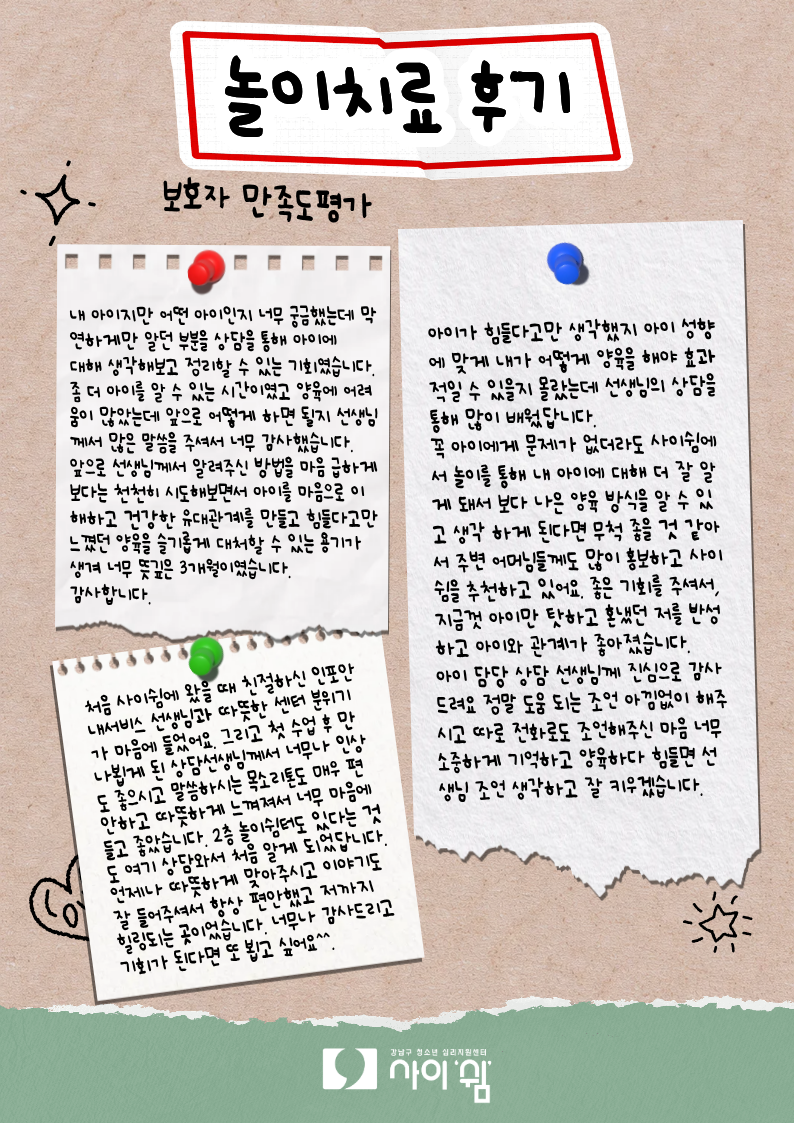 놀이치료 후기
보호자 만족도평가
내 아이지만 어떤 아이인지 너무 궁금했는데 막
연하게만 알던 부분을 상담을 통해 아이에
대해 생각해보고 정리할 수 있는 기회였습니다.
좀 더 아이를 알 수 있는 시간이였고 양육에 어려
움이 많았는데 앞으로 어떻게 하면 될지 선생님
께서 많은 말씀을 주셔서 너무 감사했습니다.
앞으로 선생님께서 알려주신 방법을 마음 급하게
보다는 천천히 시도해보면서 아이를 마음으로 이
해하고 건강한 유대관계를 만들고 힘들다고만
느꼈던 양육을 슬기롭게 대처할 수 있는 용기가
생겨 너무 뜻깊은 3개월이였습니다.
감사합니다.
처음 사이쉼에 왔을 때 친절하신 인포안
내서비스 선생님과 따뜻한 센터 분위기
가 마음에 들었어요. 그리고 첫 수업 후 만
나뵙게 된 상담선생님께서 너무나 인상
도 좋으시고 말씀하시는 목소리톤도 매우 편
안하고 따뜻하게 느껴져서 너무 마음에
들고 좋았습니다. 2층 놀이쉼터도 있다는 것
도 여기 상담와서 처음 알게 되었답니다.
언제나 따뜻하게 맞아주시고 이야기도
잘 들어주셔서 항상 편안했고 저까지
힐링되는 곳이었습니다. 너무나 감사드리고
기회가 된다면 또 뵙고 싶어요^^.
아이가 힘들다고만 생각했지 아이 성향
에 맞게 내가 어떻게 양육을 해야 효과
적일 수 있을지 몰랐는데 선생님의 상담을
통해 많이 배웠답니다.
꼭 아이에게 문제가 없더라도 사이쉼에
서 놀이를 통해 내 아이에 대해 더 잘 알
게 돼서 보다 나은 양육 방식을 알 수 있
고 생각 하게 된다면 무척 좋을 것 같아
서 주변 어머님들께도 많이 홍보하고 사이
쉼을 추천하고 있어요. 좋은 기회를 주셔서,
지금껏 아이만 탓하고 혼냈던 저를 반성
하고 아이와 관계가 좋아졌습니다.
아이 담당 상담 선생님께 진심으로 감사
드려요 정말 도움 되는 조언 아낌없이 해주
시고 따로 전화로도 조언해주신 마음 너무
소중하게 기억하고 양육하다 힘들면 선
생님 조언 생각하고 잘 키우겠습니다.
강남구 청소년 심리지원센터
사이쉼